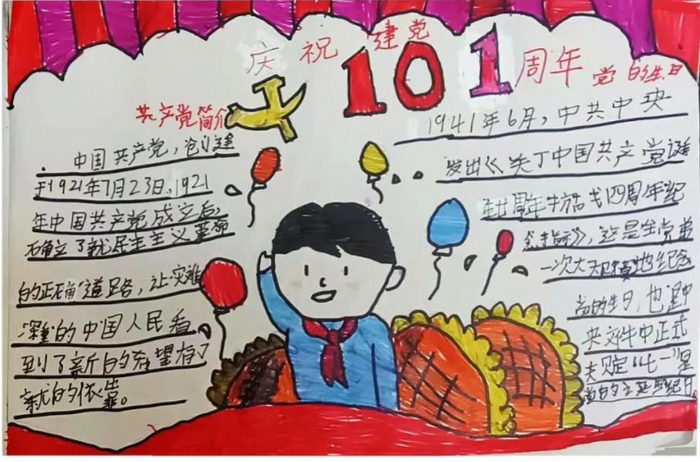 庆祝建党101周年
党的生日
共产党简介
中国共产党，创建
于1921年7月23日，1921
年中国共产党成立后
确立了新民主主义革命
的正确道路，让灾难
深重的中国人民看
到了新的希望有了
新的依靠。
1941年6月，中共中央
发出《关于中国共产党诞
生廿周年抗战四周年纪
念指示》，这是全党第
一次大规模地纪念
党的生日，也是中
央文件中正式
规定“七一”是
党的